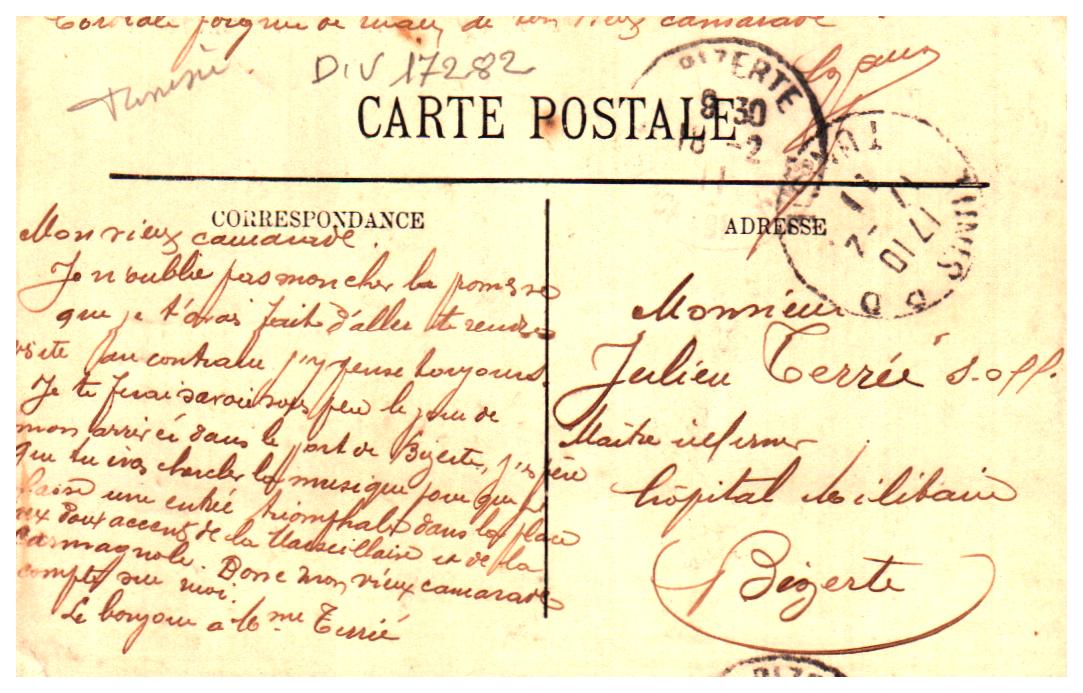 Cordiale poignée de main de ton vieux camarade
Tunisie
DIV 17282
CARTE POSTALE
BIZERTE
8 30
16 -2
11
TUNIS R. D
17 10
CORRESPONDANCE
ADRESSE
Mon vieux camarade.
Je n'oublie pas mon cher la promesse
que je t'avais faite d'aller te rendre
visite au contraire j'y pense toujours.
Je te ferai savoir sous peu le jour de
mon arrivée dans le port de Bizerte, j'espère
que tu iras chercher la musique pour que je
fasse une entrée triomphale dans la place
aux doux accents de la Marseillaise et de la
Carmagnole. Donc mon vieux camarade
compte sur moi.
Le bonjour à Mme Terrié
Monsieur
Julien Terrée s-off.
Maître infirmier
hôpital Militaire
Bizerte
BIZE